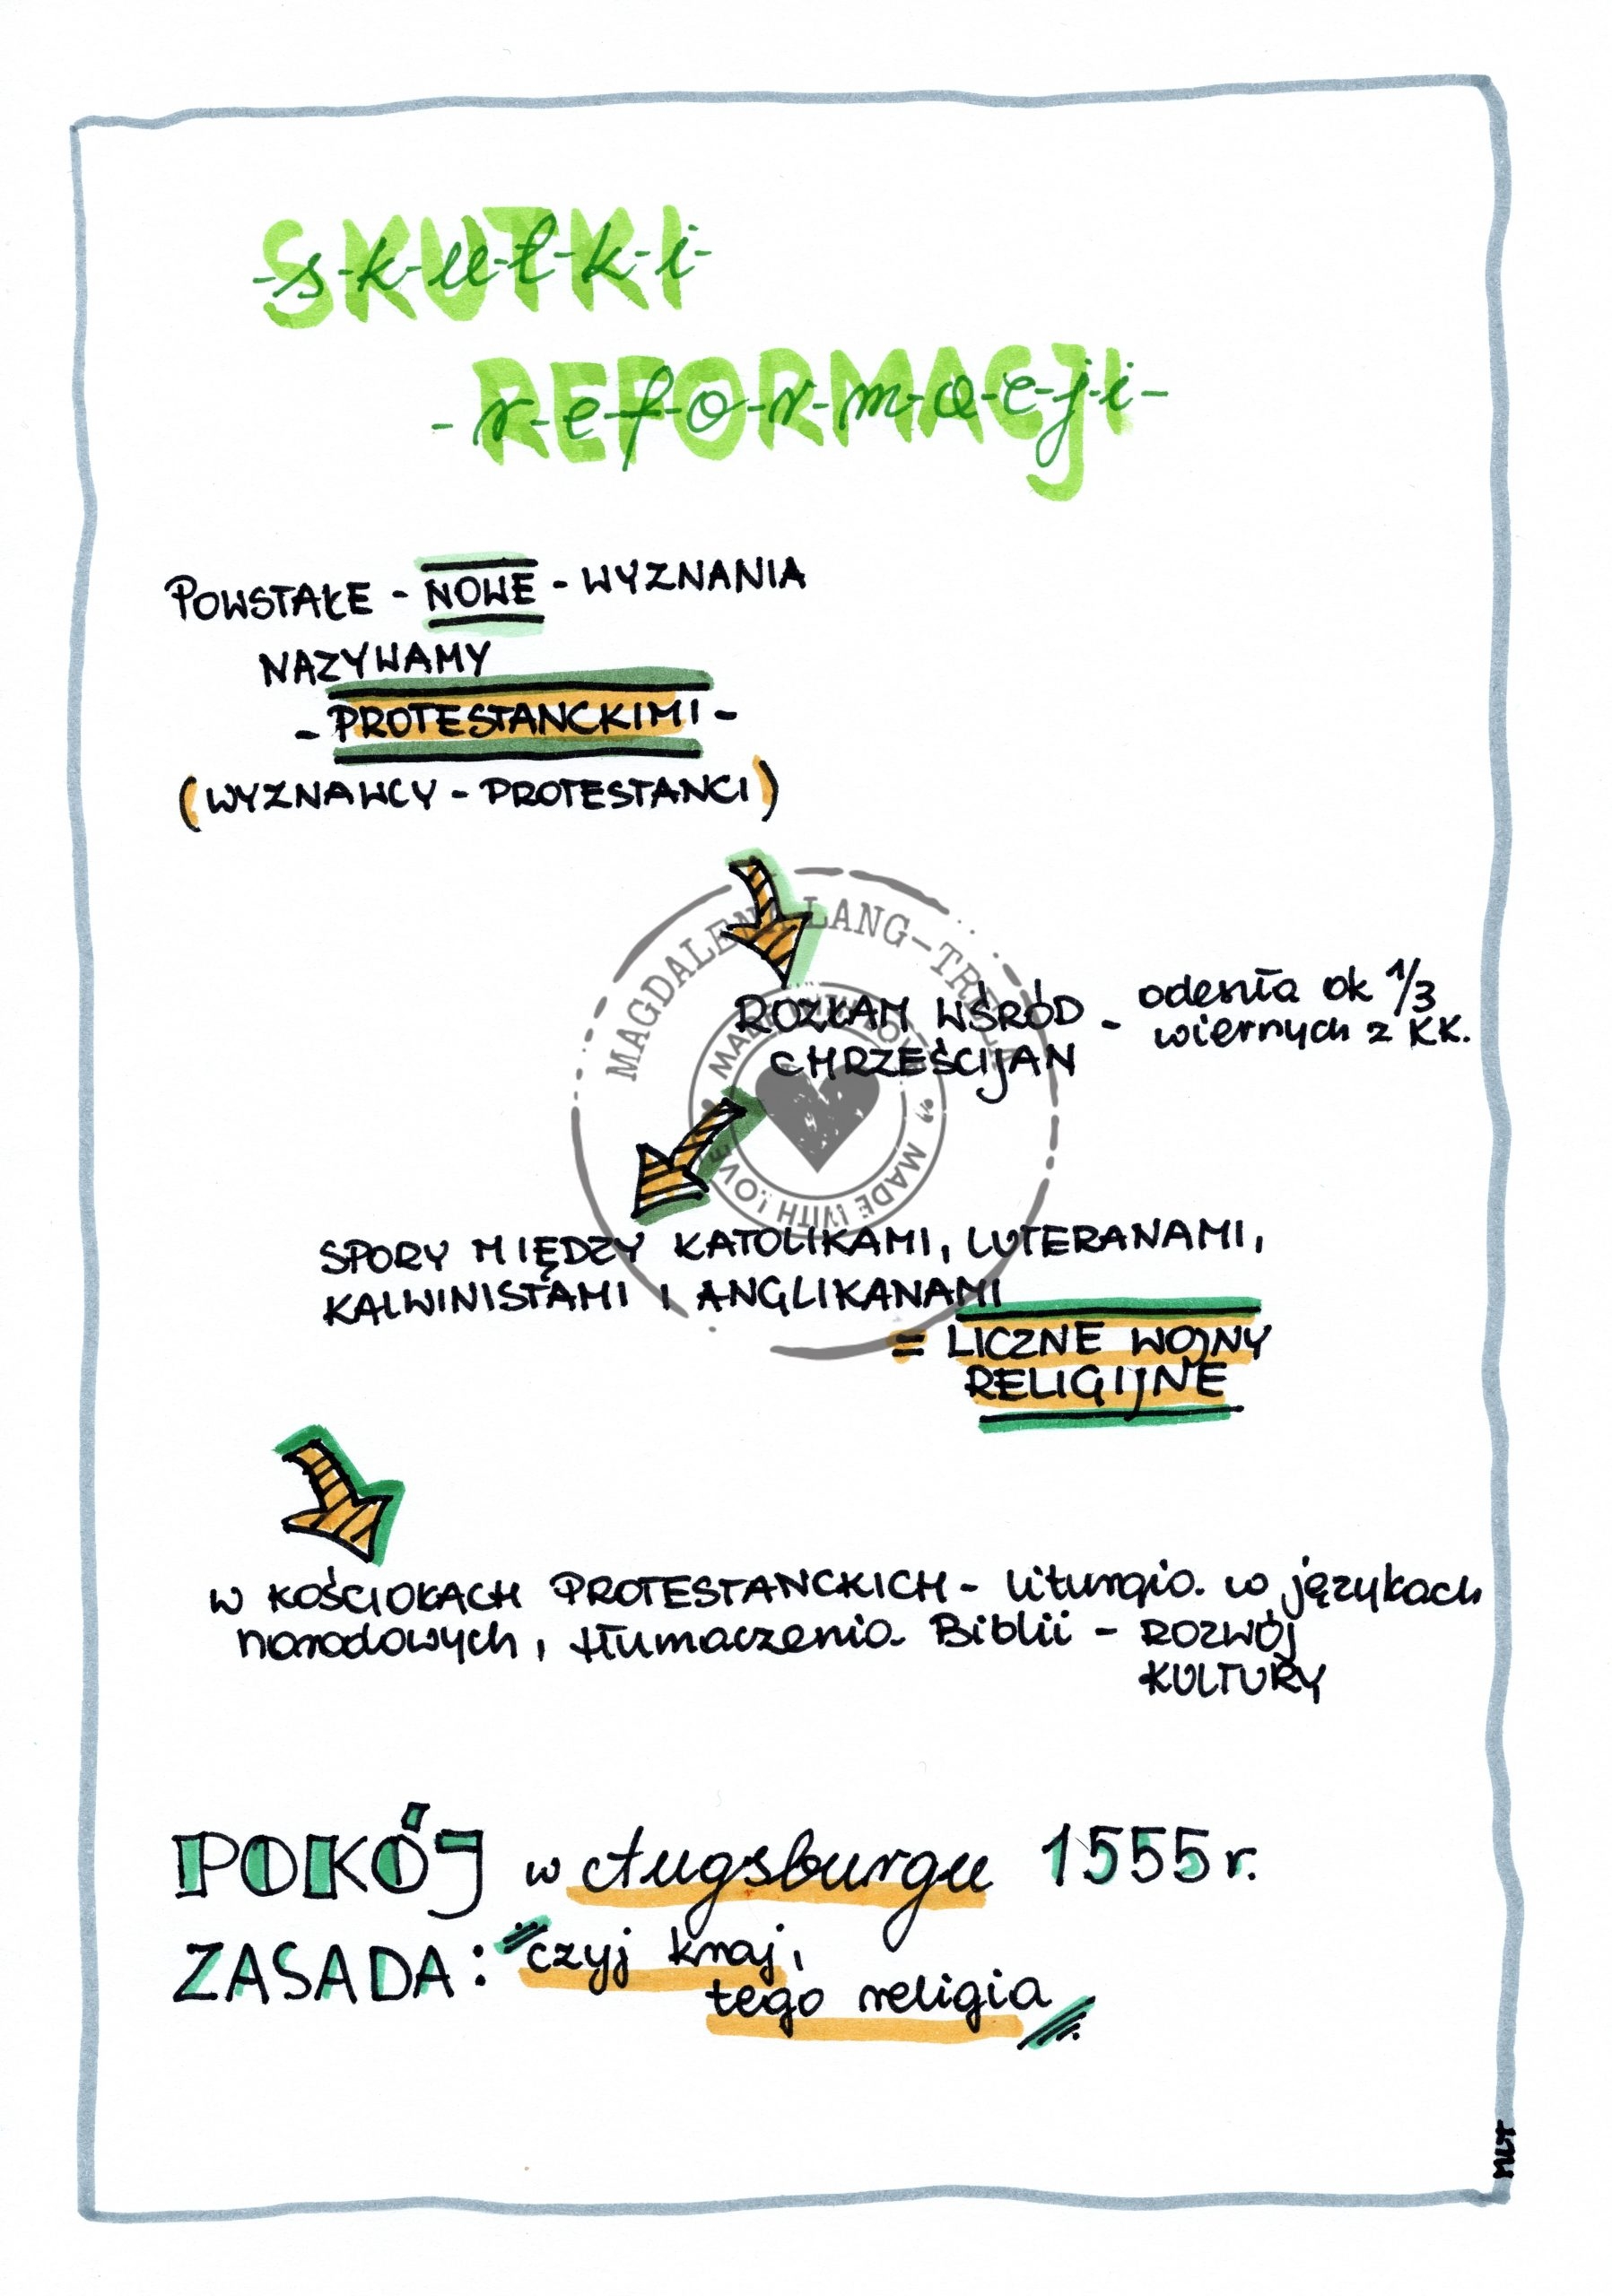 SKUTKI
-s-k-u-t-k-i-
REFORMACJI
-r-e-f-o-r-m-a-c-j-i-
POWSTAŁE - NOWE - WYZNANIA
NAZYWAMY
- PROTESTANCKIMI -
(WYZNAWCY - PROTESTANCI)
MAGDALENA LANG-TRELA
ROZŁAM WŚRÓD - odeszła ok 1/3
CHRZEŚCIJAN wiernych z KK.
MADE WITH LOVE
MADE WITH LOVE
SPORY MIĘDZY KATOLIKAMI, LUTERANAMI,
KALWINISTAMI I ANGLIKANAMI
= LICZNE WOJNY
RELIGIJNE
W KOŚCIOŁACH PROTESTANCKICH - liturgia w językach
narodowych, tłumaczenia Biblii - ROZWÓJ
KULTURY
POKÓJ w Augsburgu 1555 r.
ZASADA: "czyj kraj,
tego religia"
MLT